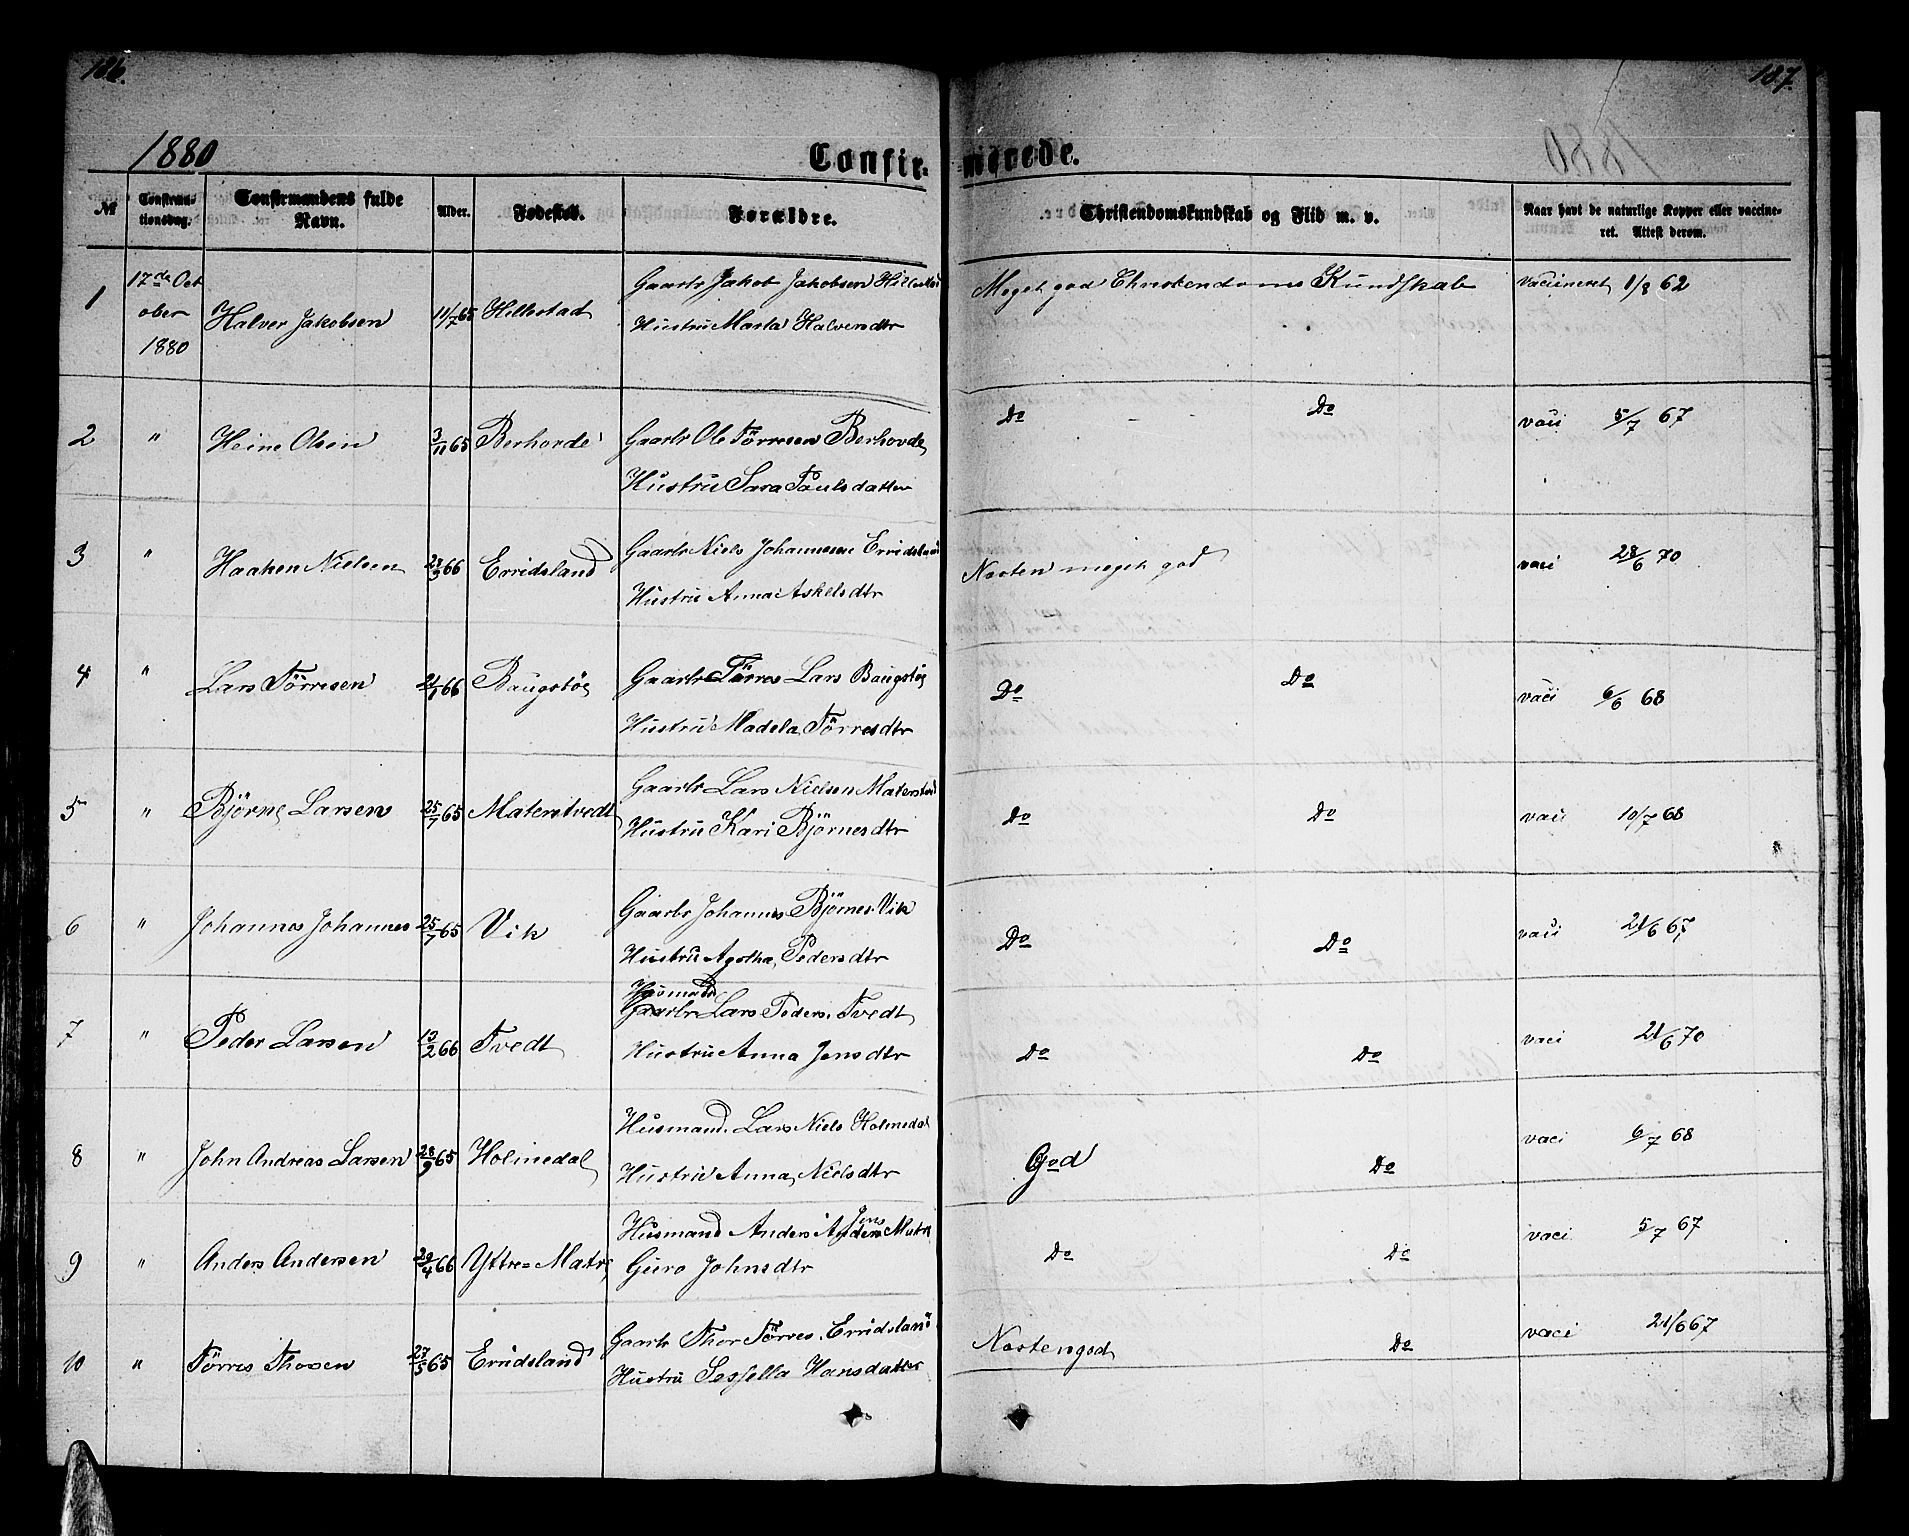 186.
187.
1880
Confirmerede.
№
Confirmationsdag.
Confirmandens fulde Navn.
Alder.
Fødested.
Forældre.
Christendomskundskab og Flid m. v.
Naar havt de naturlige Kopper eller vaccineret. Attest derom.
1 17de October 1880 Halver Jakobsen 11/7 65 Hillestad Gaarbr Jakob Jakobsen Hillestad
Hustru Marta Halversdtr
Meget god Christendoms Kundskab vaccineret 1/8 62
2 " Heine Olsen 3/11 65 Berhovde Gaarbr Ole Tørresen Berhovde
Hustru Sara Paulsdatter
Do - Do vaci 5/7 67
3 " Haaken Nielsen 23/9 66 Erridsland Gaarbr Niels Johannesen Erridsland
Hustru Anna Askelsdtr
Næsten meget god vaci 28/6 70
4 " Lars Tørresen 21/1 66 Baugstøe Gaarbr Tørres Lars Baugstøe
Hustru Madela Tørresdtr
Do Do vaci 6/6 68
5 " Bjørne Larsen 25/7 65 Materstvedt Gaarbr Lars Nielsen Materstved
Hustru Kari Bjørnesdtr
Do Do vaci 10/7 68
6 " Johannes Johannes 25/7 65 Vik Gaarbr Johannes Bjørnes. Vik
Hustru Agatha Pedersdtr
Do Do vaci 21/6 67
7 " Peder Larsen 13/2 66 Tvedt Husmand
Gaarbr Lars Peders. Tvedt
Hustru Anna Jensdtr
Do Do vaci 21/6 70
8 " John Andreas Larsen 28/9 65 Holmedal Husmand. Lars Niels Holmedal
Hustru Anna Nielsdtr
God Do vaci 6/7 68
9 " Anders Andersen 20/4 66 Yttre=Matre Husmand Anders Jens Matre
Guro Johnsdtr
Do Do vaci 5/7 67
10 " Tørres Thosen 27/5 65 Erridsland Gaarbr Thor Tørres. Erridsland
Hustru Sessella Hansdatter
Næsten god Do vaci 21/6 67